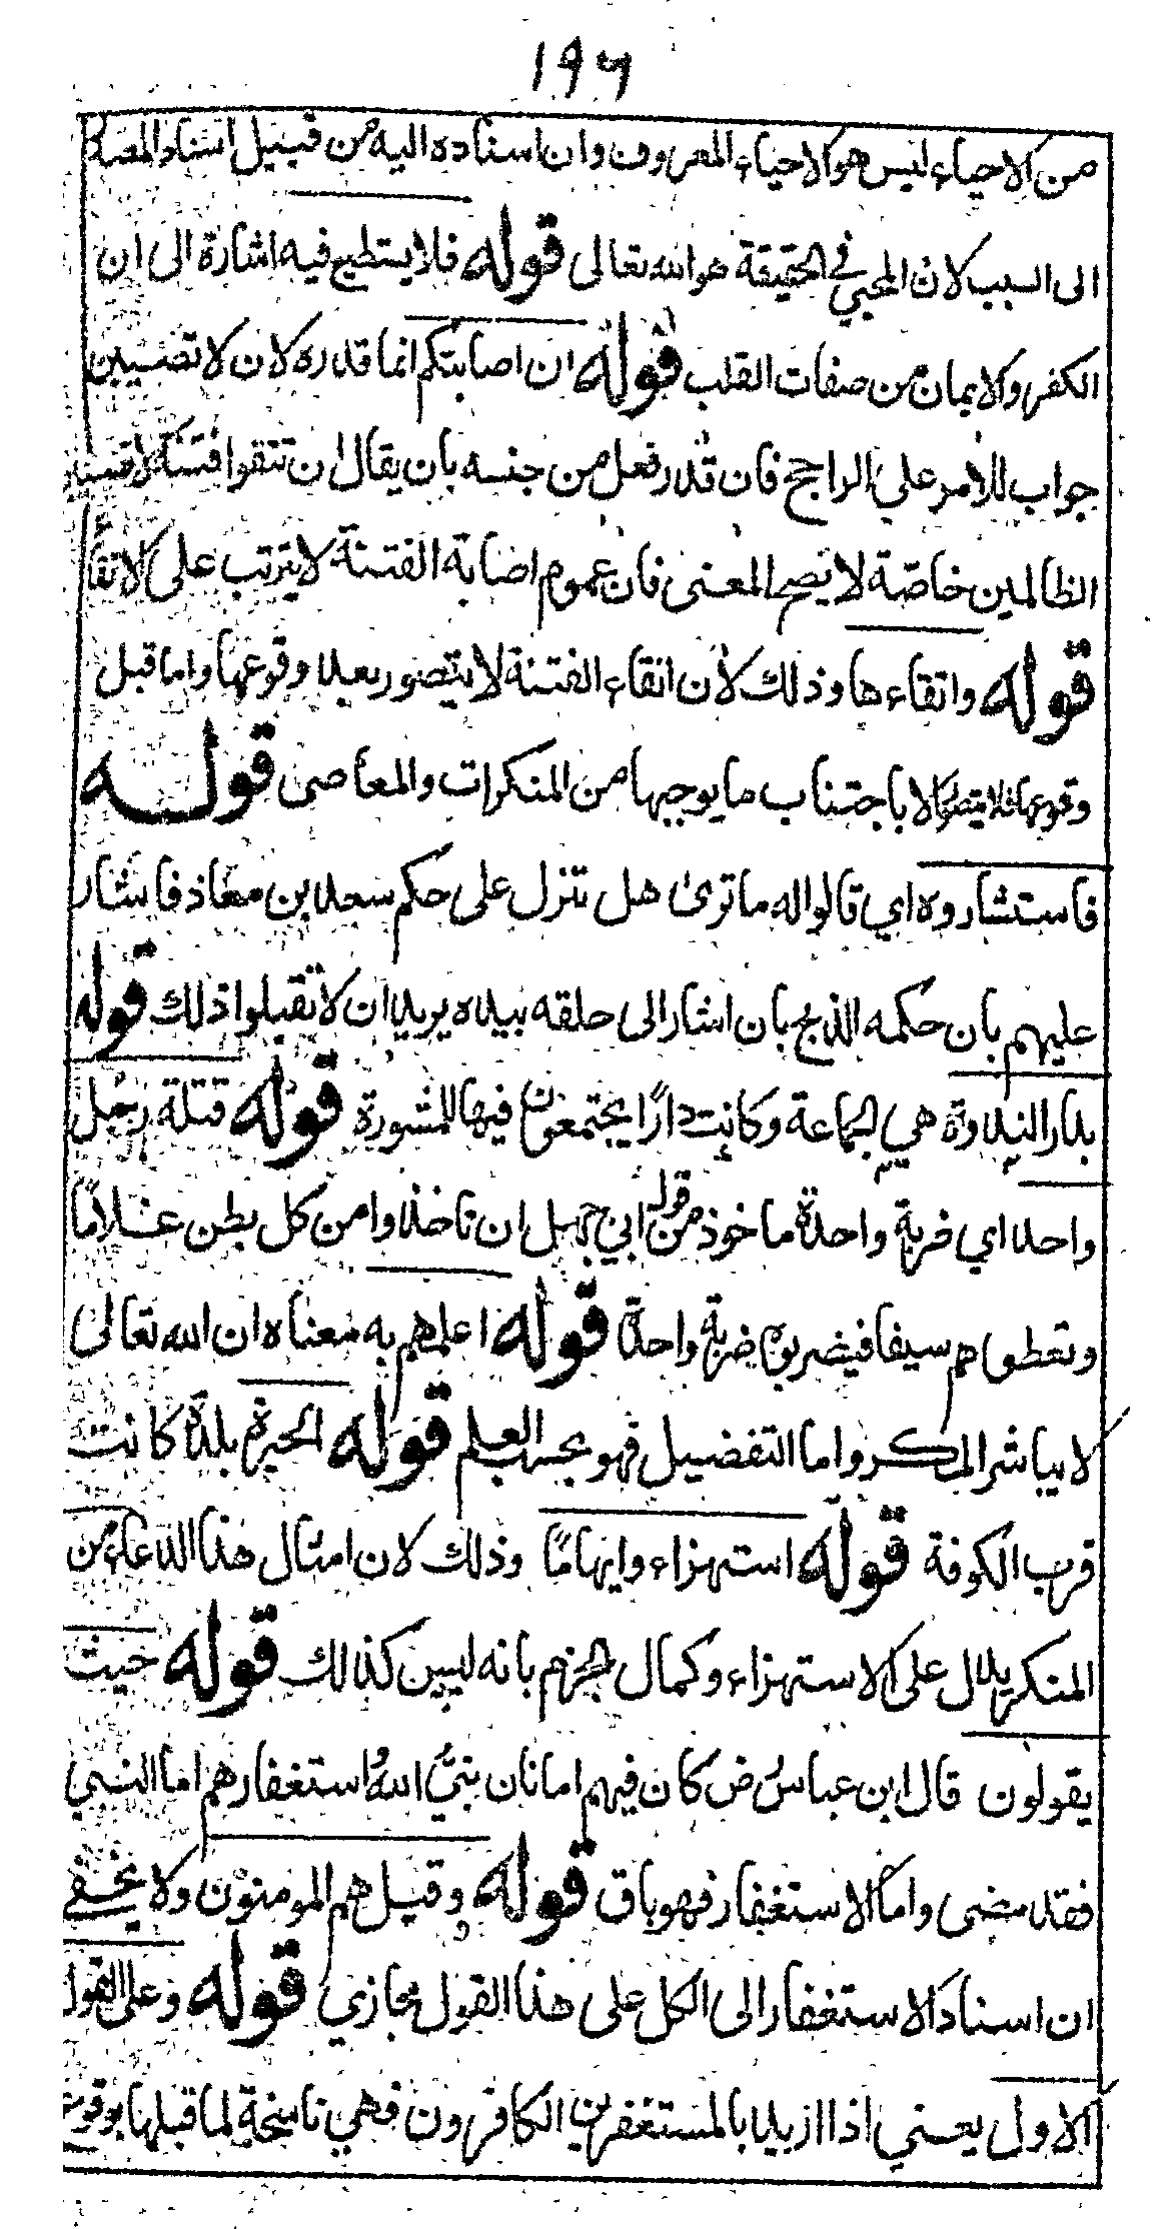 ١٩٦
من الاحياء ليس هو الاحياء المعروف وان اسناده اليه من قبيل اسناد
الى السبب لان المحيي في الحقيقة هو الله تعالى قوله فلا يستطيع فيه اشارة الى ان
الكفر والايمان من صفات القلب قوله ان اصابتكم انما قدره لان لا تصيبن
جواب للامر على الراجح فان قدر فعل من جنسه بان يقال ان تتقوا فتنة لا
الظالمين خاصّة لا يصح المعنى فان عموم اصابة الفتنة لا يترتب على الاتقا
قوله واتقاءها وذلك لان اتقاء الفتنة لا يتصور بعد وقوعها واما قبل
وقوعها فلا يتصور الا باجتناب ما يوجبها من المنكرات والمعاصى قوله
فاستشاروه اي قالوا له ما ترى هل ننزل على حكم سعد بن معاذ فاشار
عليهم بان حكمه الذبح بان اشار الى حلقه بيده يريد ان لا تقبلوا ذلك قوله
بدار الندوة هي الجماعة وكانت دارًا يجتمعون فيها للمشورة قوله قتلة رجل
واحد اي ضربة واحدة ماخوذ من قول ابي جهل ان تاخذوا من كل بطن غلامًا
وتعطوهم سيفا فيضربوه ضربة واحدة قوله اعلمهم به معناه ان الله تعالى
لا يباشر المكر واما التفضيل فهو بحسب العلم قوله الحيرة بلدة كانت
قرب الكوفة قوله استهزاء وايهامًا وذلك لان امثال هذا الدعاء من
المنكر يدل على الاستهزاء وكمال الجزم بانه ليس كذالك قوله حيث
يقولون قال ابن عباس رض كان فيهم امانان نبيُّ الله واستغفارهم اما النبي
فقد مضى واما الاستغفار فهو باق قوله وقيل هم المومنون ولا يخفى
ان اسناد الاستغفار الى الكل على هذا القول مجازي قوله وعلى القول
الاول يعني اذا اريد بالمستغفرين الكافرون فهي ناسخة لما قبلها